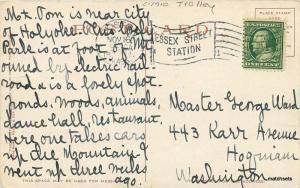 c-1910 TTO May
Mt. Tom is near city
of Holyoke. This lovely
Park is at foot of Mt
owned by electric rail
road & is a lovely spot.
Ponds, woods, animals,
dance hall, restaurant.
here one takes cars
up the Mountain. I
went up three weeks
ago.
THIS SPACE MAY BE USED FOR
NOV
ESSEX STREET
STATION
PLACE STAMP
ONE CENT
Master George Ward
443 Karr Avenue
Hoquiam
Washington
matchsets